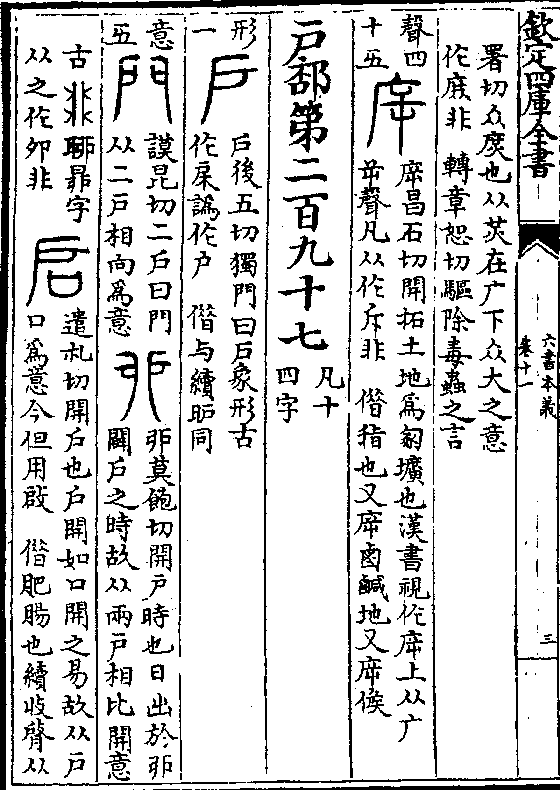 欽定四庫全書
六書本義
卷十一
三
署切众庶也从炗在广下众大之意
作庻非 轉章恕切驅除毒蟲之言
聲四
十五
庌
席昌石切開拓土地為匊壙也漢書視作席上从广
屰聲凡从作斥非 借指也又席鹵鹹地又席候
戶部第二百九十七
凡十
四字
形
一
戶
戶後五切獨門曰戶象形古
作㦿譌作户 借与續戽同
意
五
門
謨昆切二戶曰門
从二戶相向為意
丣
丣莫飽切開戶時也日出於丣
闢戶之時故从兩戶相比開意
古 聊昴字
从之作卯非
启
遣礼切開戶也戶開如口開之易故从戶
口為意今但用啟 借肥腸也續收䏿从